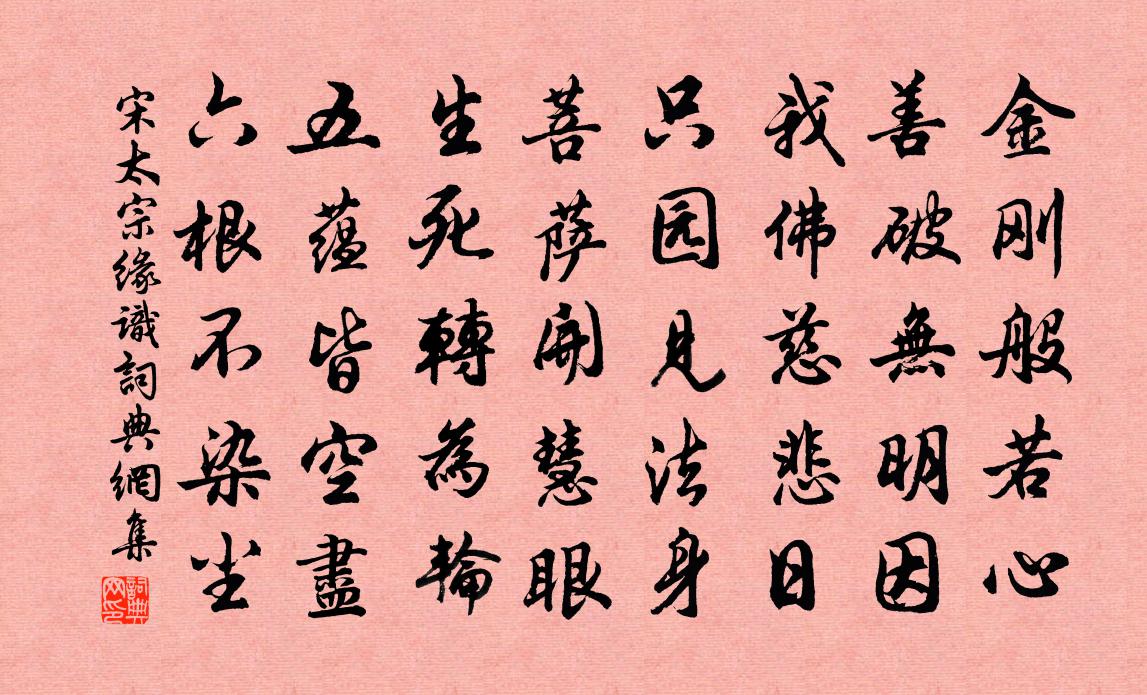 金刚般若心
善破無明因
我佛慈悲日
只园見法身
菩萨開慧眼
生死轉為輪
五蕴皆空盡
六根不染尘
宋太宗緣識詞典網集
詞典网印